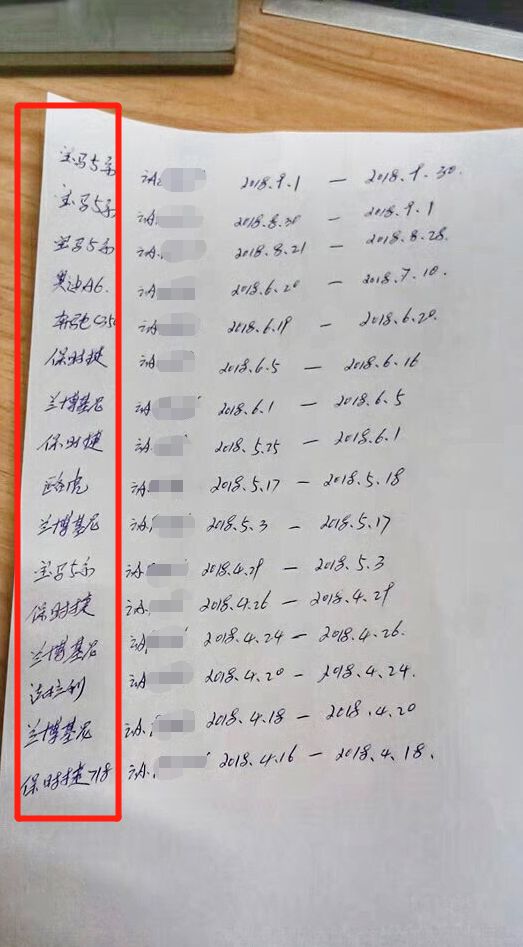 宝马5系 浙A 2018.9.1 — 2018.9.30.
宝马5系 浙A. 2018.8.30 — 2018.9.1
宝马5系 浙A. 2018.8.21 — 2018.8.28.
奥迪A6. 浙A 2018.6.20 — 2018.7.10.
奔驰C350 浙A 2018.6.19 — 2018.6.20.
保时捷 浙A 2018.6.5 — 2018.6.16
兰博基尼 浙A. 2018.6.1 — 2018.6.5
保时捷 浙A 2018.5.25 — 2018.6.1
路虎 浙A. 2018.5.17 — 2018.5.18
兰博基尼 浙A. 2018.5.3 — 2018.5.17
宝马5系 浙A. 2018.4.29 — 2018.5.3
保时捷 浙A. 2018.4.26 — 2018.4.29
兰博基尼 浙A. 2018.4.24 — 2018.4.26.
法拉利 浙A 2018.4.20 — 2018.4.24.
兰博基尼 浙A. 2018.4.18 — 2018.4.20
保时捷718 浙A. 2018.4.16 — 2018.4.18.